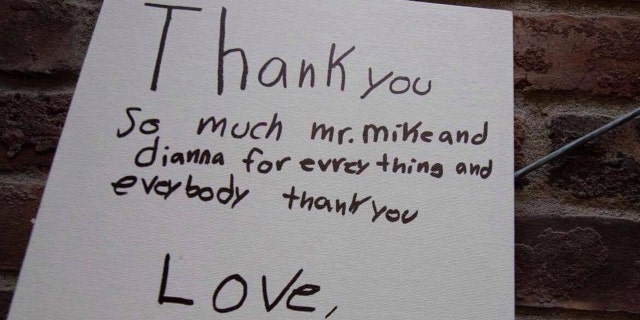 Thank you
So much mr. mike and
dianna for evrey thing and
everybody thank you
Love,